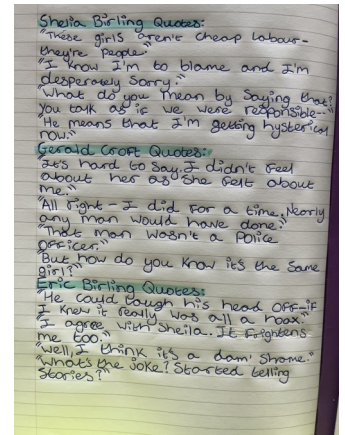 Shelia Birling Quotes:
"These girls aren't cheap labour-
they're people"
"I know I'm to blame and I'm
desperately sorry."
"What do you mean by saying that?
You talk as if we were responsible-"
"He means that I'm getting hysterical
now."
Gerald Croft Quotes:
"It's hard to say. I didn't feel
about her as she felt about
me."
"All right - I did for a time. Nearly
any man would have done."
"That man wasn't a police
officer."
"But how do you know it's the same
girl?"
Eric Birling Quotes:
"He could laugh his head off-if
I knew it really was all a hoax"
"I agree with Sheila. It frightens
me too."
"Well, I think it's a dam' shame."
"What's the joke? Started telling
stories?"